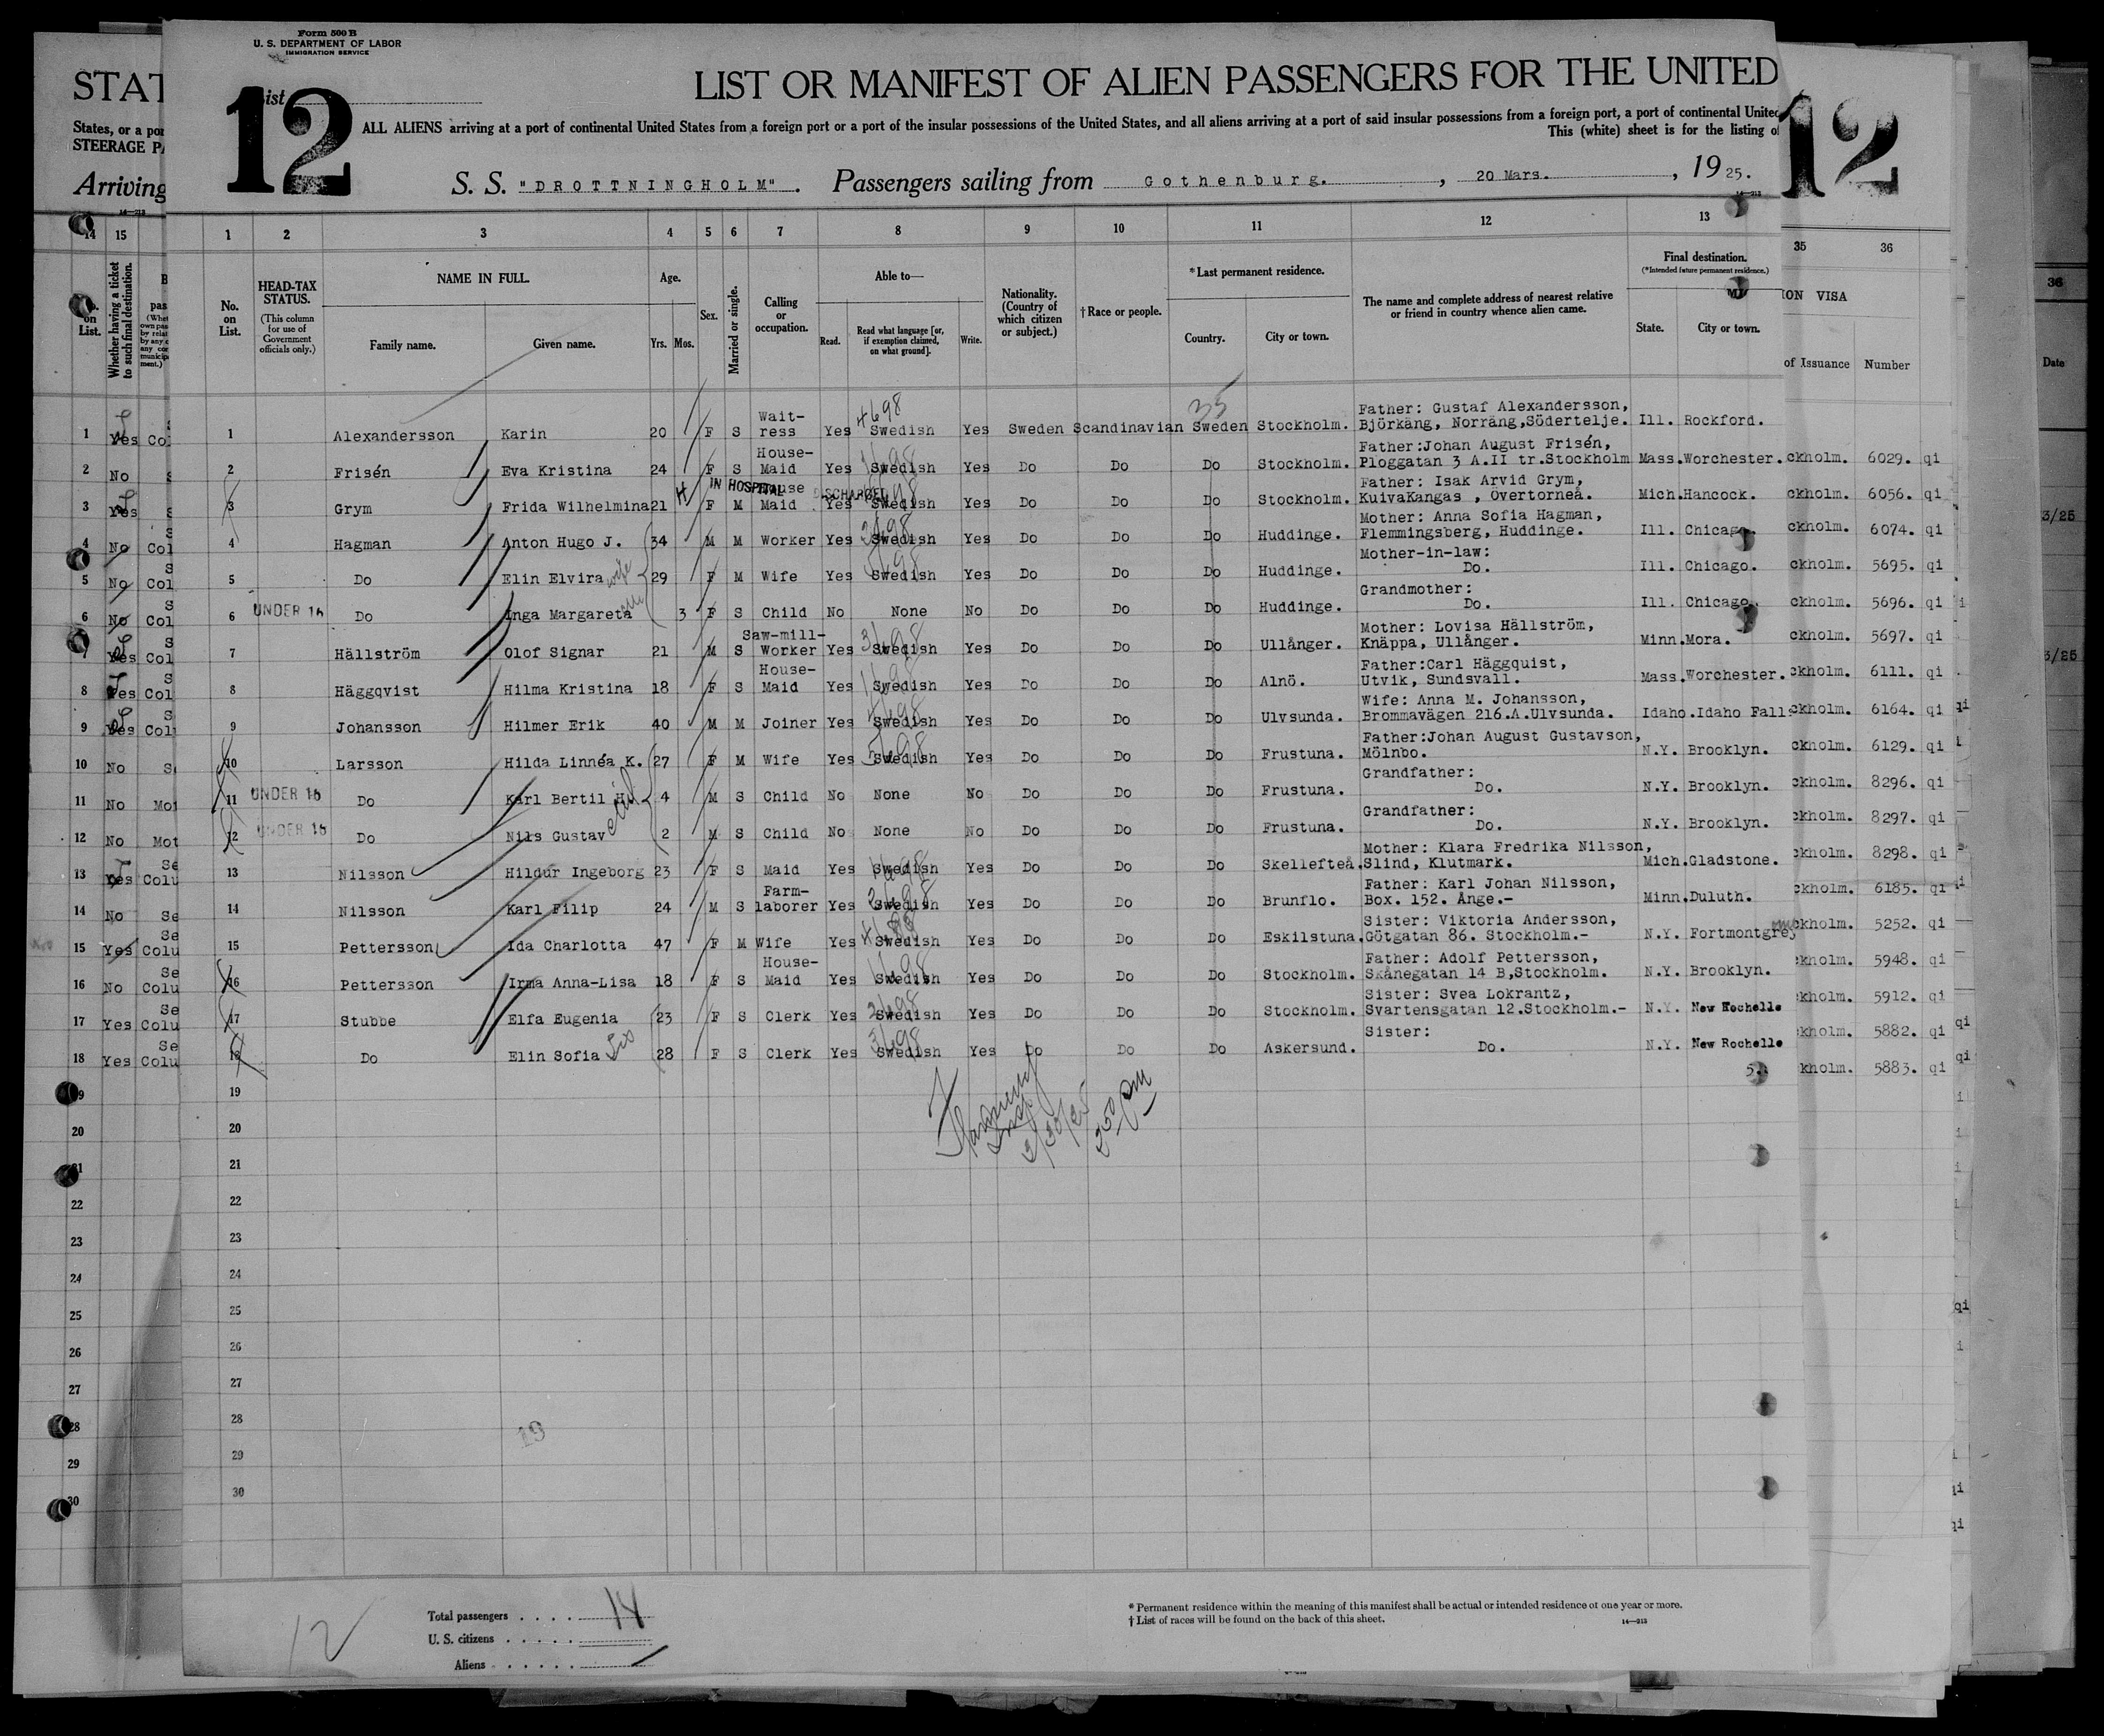 Form 500 B
U. S. DEPARTMENT OF LABOR
IMMIGRATION SERVICE
STAT
List
12
LIST OR MANIFEST OF ALIEN PASSENGERS FOR THE UNITED
12
States, or a por
STEERAGE PA
ALL ALIENS arriving at a port of continental United States from a foreign port or a port of the insular possessions of the United States, and all aliens arriving at a port of said insular possessions from a foreign port, a port of continental United
This (white) sheet is for the listing o
Arriving
S. S. "DROTTNINGHOLM". Passengers sailing from Gothenburg. , 20 Mars. , 19 25.
14—213
14 15 1 2 3 4 5 6 7 8 9 10 11 12 13 35 36
No. on List. Whether having a ticket to such final destination.
No. on List. HEAD-TAX STATUS. (This column for use of Government officials only.) NAME IN FULL. Family name. Given name. Age. Yrs. Mos. Sex. Married or single. Calling or occupation. Able to— Read. Read what language [or, if exemption claimed, on what ground]. Write. Nationality. (Country of which citizen or subject.) †Race or people. *Last permanent residence. Country. City or town. The name and complete address of nearest relative or friend in country whence alien came. Final destination. (*Intended future permanent residence.) State. City or town.
ION VISA
of Issuance Number
36
Date
1 Yes Co 1 Alexandersson Karin 20 F S Wait-ress Yes Swedish Yes Sweden Scandinavian Sweden Stockholm. Father: Gustaf Alexandersson, Björkäng, Norräng, Södertelje. Ill. Rockford.
2 No 2 Frisén Eva Kristina 24 F S House-Maid Yes Swedish Yes Do Do Do Stockholm. Father: Johan August Frisén, Ploggatan 3 A.II tr.Stockholm Mass. Worchester. ckholm. 6029. qi
IN HOSPITAL DISCHARGED
3 Yes 3 Grym Frida Wilhelmina 21 F M House Maid Yes Swedish Yes Do Do Do Stockholm. Father: Isak Arvid Grym, KuivaKangas , Övertorneå. Mich. Hancock. ckholm. 6056. qi
4 No Col 4 Hagman Anton Hugo J. 34 M M Worker Yes Swedish Yes Do Do Do Huddinge. Mother: Anna Sofia Hagman, Flemmingsberg, Huddinge. Ill. Chicago. ckholm. 6074. qi
5 No Col 5 Do Elin Elvira wife 29 F M Wife Yes Swedish Yes Do Do Do Huddinge. Mother-in-law: Do. Ill. Chicago. ckholm. 5695. qi
6 No Col 6 UNDER 16 Do Inga Margareta 3 F S Child No None No Do Do Do Huddinge. Grandmother: Do. Ill. Chicago. ckholm. 5696. qi
7 Yes Col 7 Hällström Olof Signar 21 M S Saw-mill-Worker Yes Swedish Yes Do Do Do Ullånger. Mother: Lovisa Hällström, Knäppa, Ullånger. Minn. Mora. ckholm. 5697. qi
8 Yes Col 8 Häggqvist Hilma Kristina 18 F S House-Maid Yes Swedish Yes Do Do Do Alnö. Father:Carl Häggquist, Utvik, Sundsvall. Mass. Worchester. ckholm. 6111. qi
9 Yes Col 9 Johansson Hilmer Erik 40 M M Joiner Yes Swedish Yes Do Do Do Ulvsunda. Wife: Anna M. Johansson, Brommavägen 216.A.Ulvsunda. Idaho. Idaho Falls ckholm. 6164. qi
10 No 10 Larsson Hilda Linnéa K. 27 F M Wife Yes Swedish Yes Do Do Do Frustuna. Father:Johan August Gustavson, Mölnbo. N.Y. Brooklyn. ckholm. 6129. qi
11 No Mot 11 UNDER 16 Do Karl Bertil H. 4 M S Child No None No Do Do Do Frustuna. Grandfather: Do. N.Y. Brooklyn. ckholm. 8296. qi
12 No Mot 12 UNDER 16 Do Nils Gustav 2 M S Child No None No Do Do Do Frustuna. Grandfather: Do. N.Y. Brooklyn. ckholm. 8297. qi
13 Yes Colu 13 Nilsson Hildur Ingeborg 23 F S Maid Yes Swedish Yes Do Do Do Skellefteå. Mother: Klara Fredrika Nilsson, Slind, Klutmark. Mich. Gladstone. ckholm. 8298. qi
14 No Se 14 Nilsson Karl Filip 24 M S Farm-laborer Yes Swedish Yes Do Do Do Brunflo. Father: Karl Johan Nilsson, Box. 152. Ånge.- Minn. Duluth. ckholm. 6185. qi
15 Yes Colu 15 Pettersson Ida Charlotta 47 F M Wife Yes Swedish Yes Do Do Do Eskilstuna. Sister: Viktoria Andersson, Götgatan 86. Stockholm.- N.Y. Fortmontgrey ckholm. 5252. qi
16 No Colu 16 Pettersson Irma Anna-Lisa 18 F S House-Maid Yes Swedish Yes Do Do Do Stockholm. Father: Adolf Pettersson, Skånegatan 14 B,Stockholm. N.Y. Brooklyn. ckholm. 5948. qi
17 Yes Colu 17 Stubbe Elfa Eugenia 23 F S Clerk Yes Swedish Yes Do Do Do Stockholm. Sister: Svea Lokrantz, Svartensgatan 12.Stockholm.- N.Y. New Rochelle kholm. 5912. qi
18 Yes Colu 18 Do Elin Sofia Sis 28 F S Clerk Yes Swedish Yes Do Do Do Askersund. Sister: Do. N.Y. New Rochelle kholm. 5882. qi
kholm. 5883. qi
19 19
20 20
21 21
22 22
23 23
24 24
25 25
26 26
27 27
28 28
29 29
30 30
3/30/25
19
12
Total passengers . . . . 14
U. S. citizens . . . . .
Aliens . . . . . .
* Permanent residence within the meaning of this manifest shall be actual or intended residence of one year or more.
† List of races will be found on the back of this sheet.
14—213